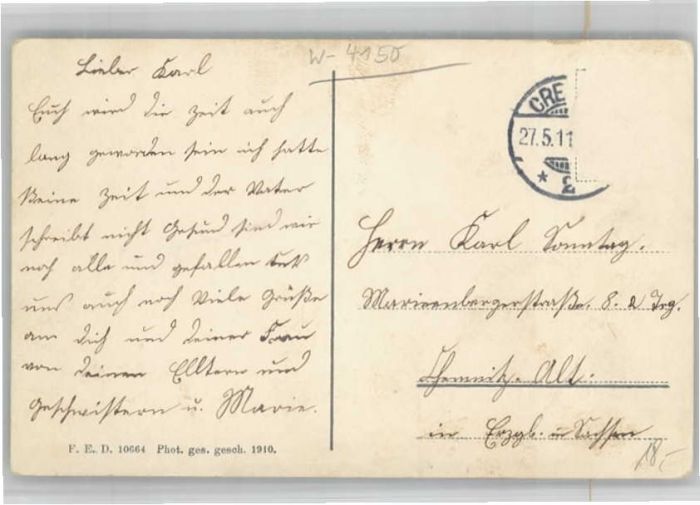 W-4150
Lieber Karl
Euch wird die Zeit auch
lang geworden sein ich hatte
keine Zeit und der Vater
schreibt nicht Gesund sind wir
noch alle und gefallen tut
uns auch noch Viele Grüße
an dich und deiner Frau
von deinen Elltern und
Geschwistern u. Marie.
F. E. D. 10664 Phot. ges. gesch. 1910.
CRE
27.5.11
* 2
Herrn Karl Sonntag.
Marienbergerstraße. 8. 2 Trg.
Chemnitz. Alt.
in Erzgb. in Sachsen
18,-